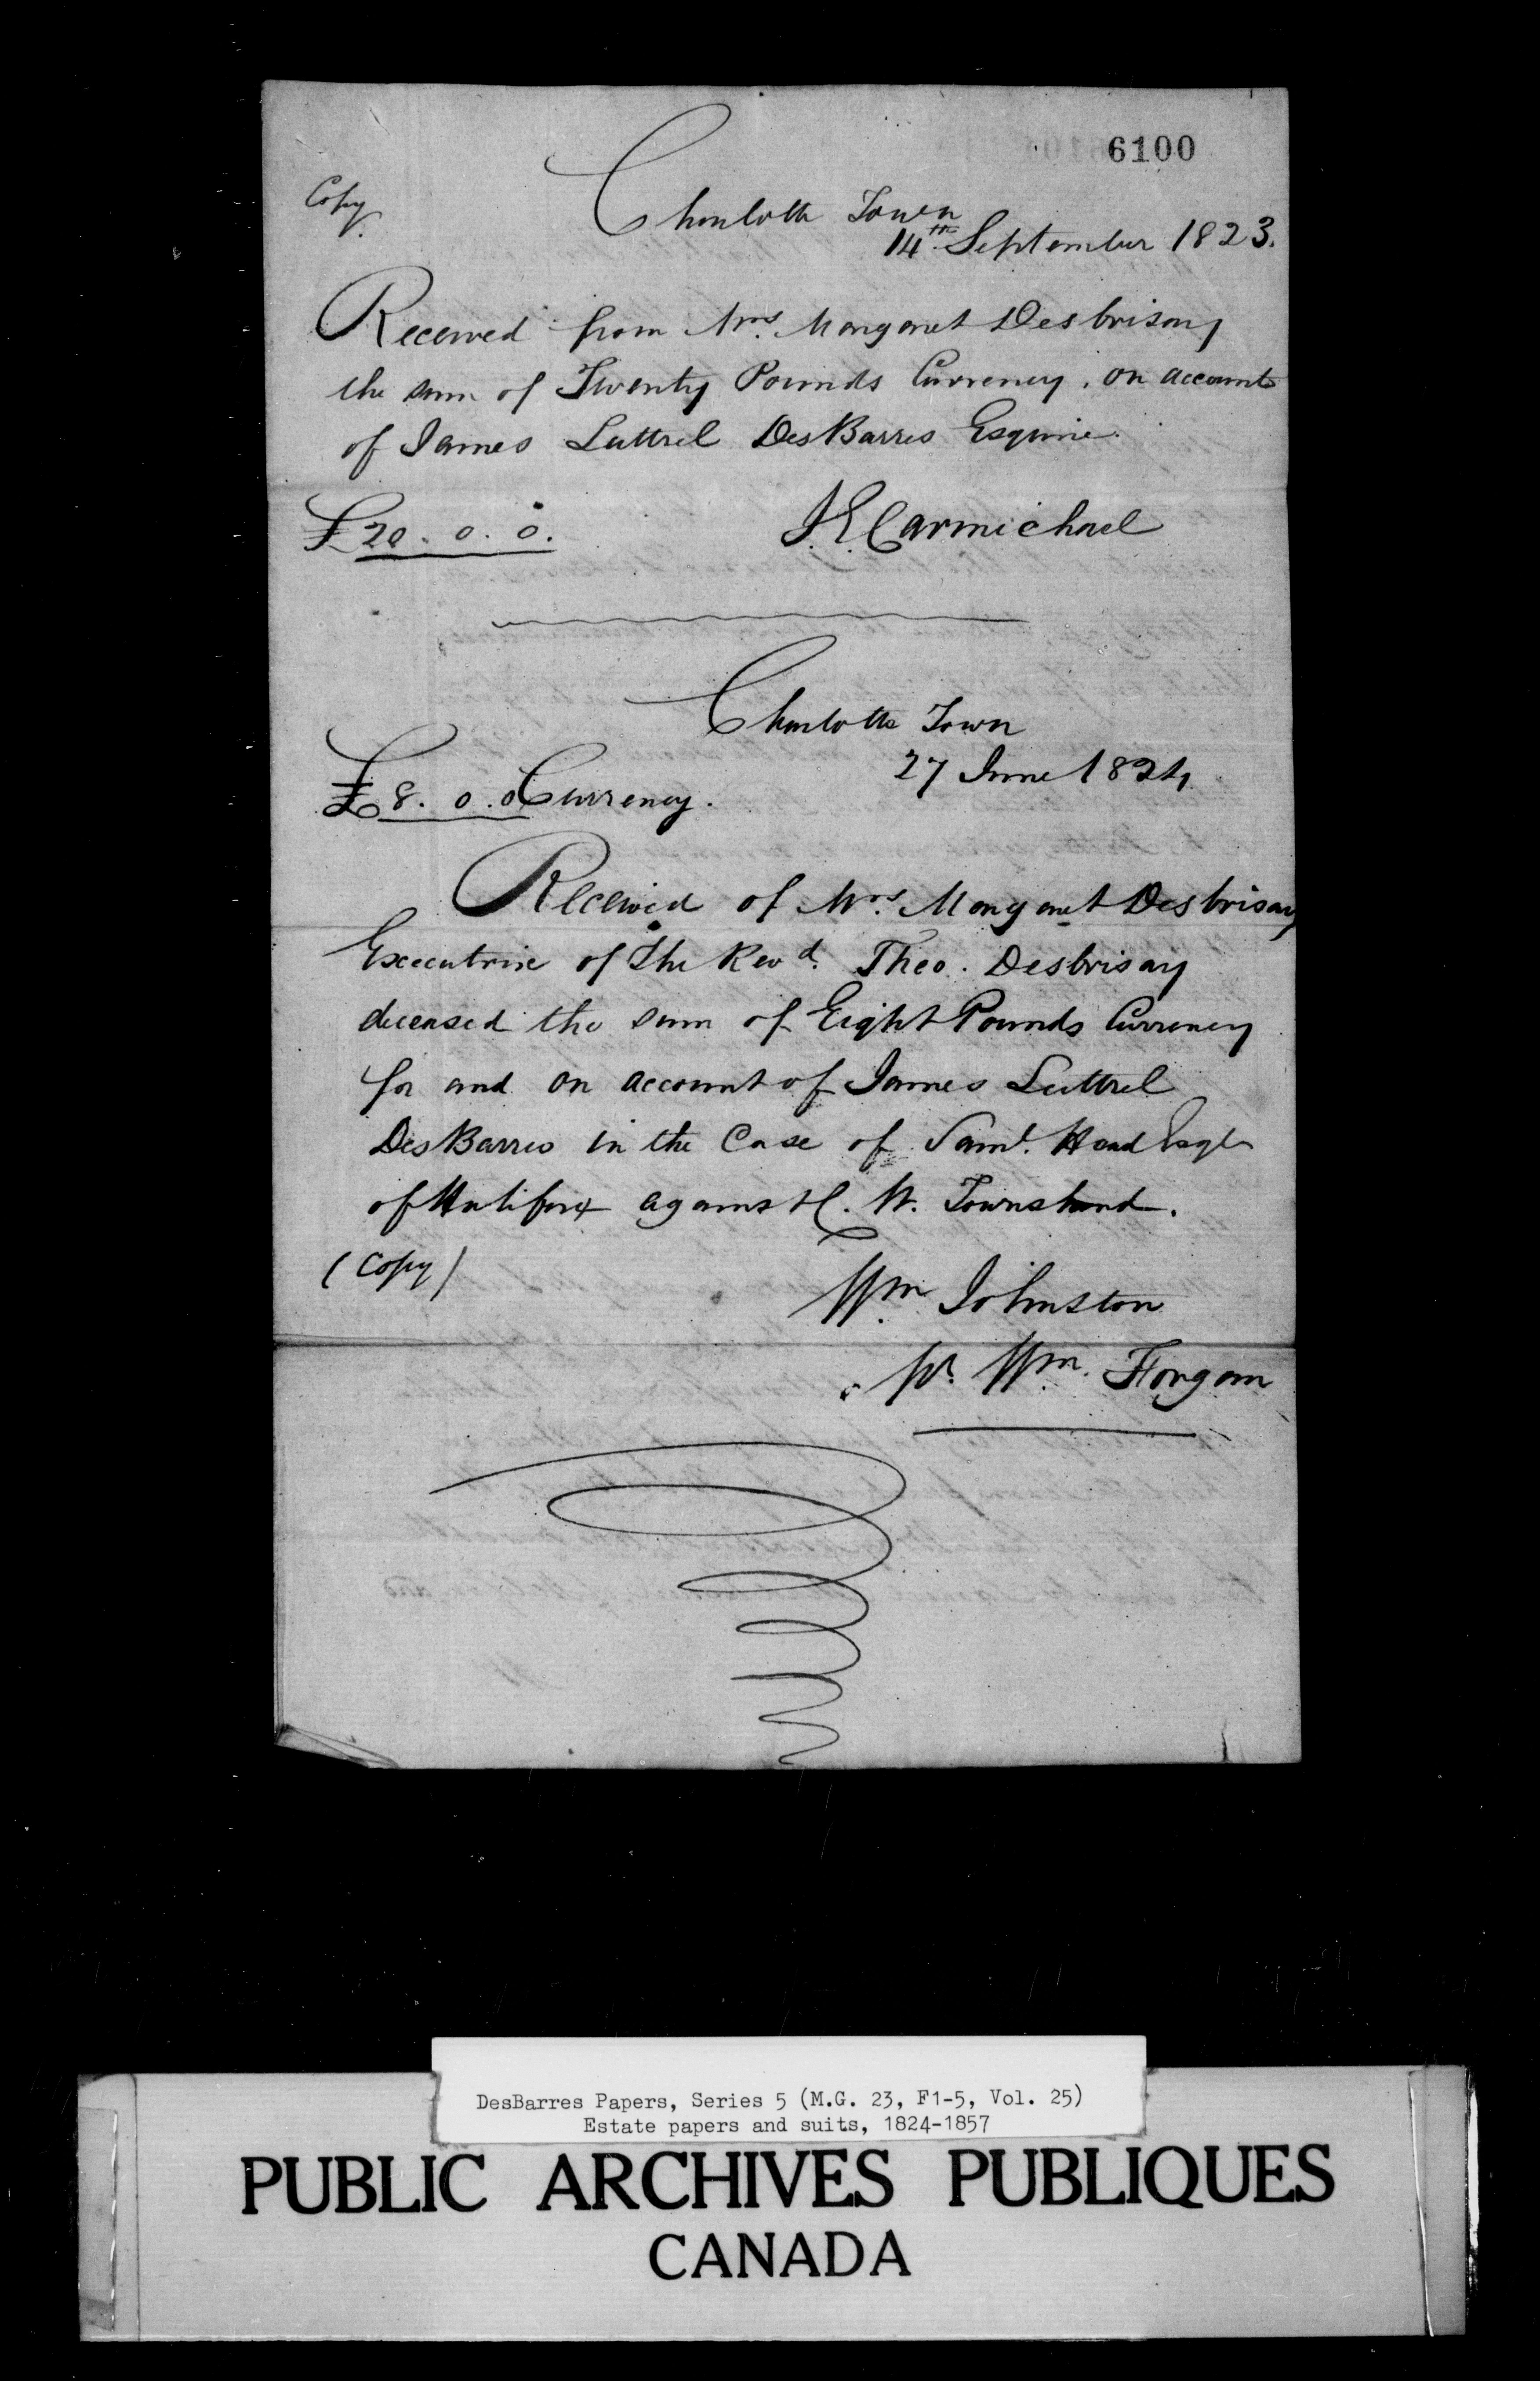 6100
Copy
Charlotte Town
14th September 1823.
Received from Mrs. Margaret Desbrisay
the sum of Twenty Pounds Currency. on account
of James Luttrel DesBarres Esquire.
£20. 0. 0.
J.E. Carmichael
Charlotte Town
27 June 1824
£8. 0. 0 Currency.
Received of Mrs. Margaret Desbrisay
Executrix of the Revd. Theo. Desbrisay
deceased the sum of Eight Pounds Currency
for and on account of James Luttrel
DesBarres in the Case of Saml. Head Esqr
of Halifax against C. W. Townshend.
(Copy)
Wm. Johnston
pr. Wm. Forgan
DesBarres Papers, Series 5 (M.G. 23, F1-5, Vol. 25)
Estate papers and suits, 1824-1857
PUBLIC ARCHIVES PUBLIQUES
CANADA